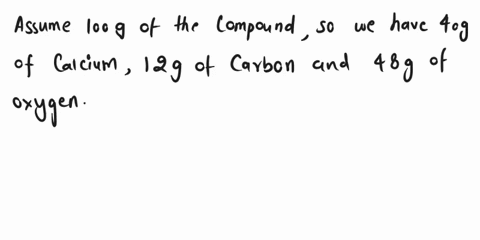 Assume 100 g of the Compound, so we have 40g
of Calcium, 12g of Carbon and 48g of
oxygen.